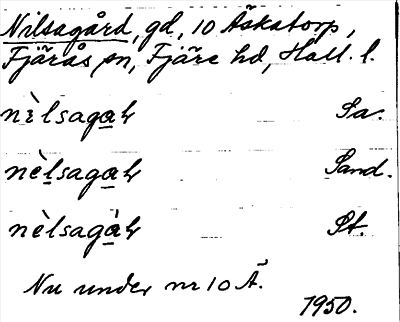 Nilsagård, gd, 10 Äskatorp,
Fjärås sn, Fjäre hd, Hall. l.
nɪ̀lsagaꝛ Sa.
nèlsagaꝛ Sand.
nèlsagàꝛ St.
Nu under nr 10 Ä.
1950.